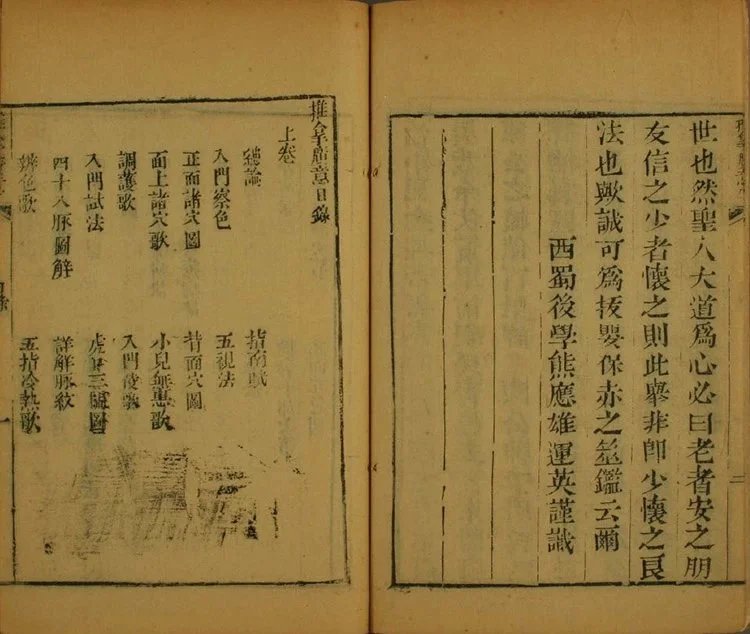 世也然聖人大道爲心必曰老者安之朋
友信之少者懷之則此舉非卽少懷之良
法也歟誠可爲拔嬰保赤之筮鑑云爾
西蜀後學熊應雄運英謹識
推拿廣意目錄
上卷
總論 指南賦
入門察色 五視法
正面諸穴圖 背面穴圖
面上諸穴歌 小兒無患歌
調護歌 入門
入門試法 虎口三關圖
四十八脈圖解 詳解脈紋
辨色歌 五指冷熱歌
目錄 一